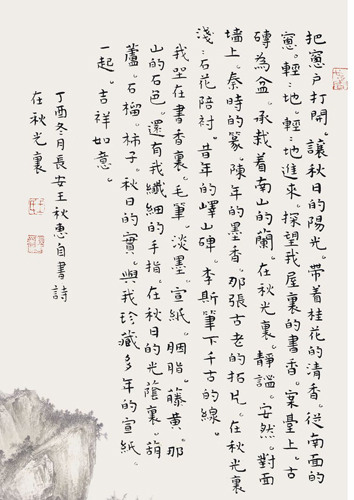 把窗户打開。讓秋日的陽光。帶着桂花的清香。從南面的
窗。輕々地。輕々地進來。探望我屋裏的書香。案臺上。古
磚為盆。承栽着南山的蘭。在秋光裏。靜謐。安然。對面
墙上。秦時的篆。陳年的墨香。那張古老的拓片。在秋光裏
淺々石花陪衬。昔年的嶧山碑。李斯筆下千古的線。
我坐在書香裏。毛筆。淡墨。宣紙。胭脂。藤黄。那
山的石色。還有我纖細的手指。在秋日的光蔭裏。葫
蘆。石榴。柿子。秋日的實。與我珍藏多年的宣紙。
一起。吉祥如意。
丁酉冬月長安王秋惠自書詩
在秋光裏